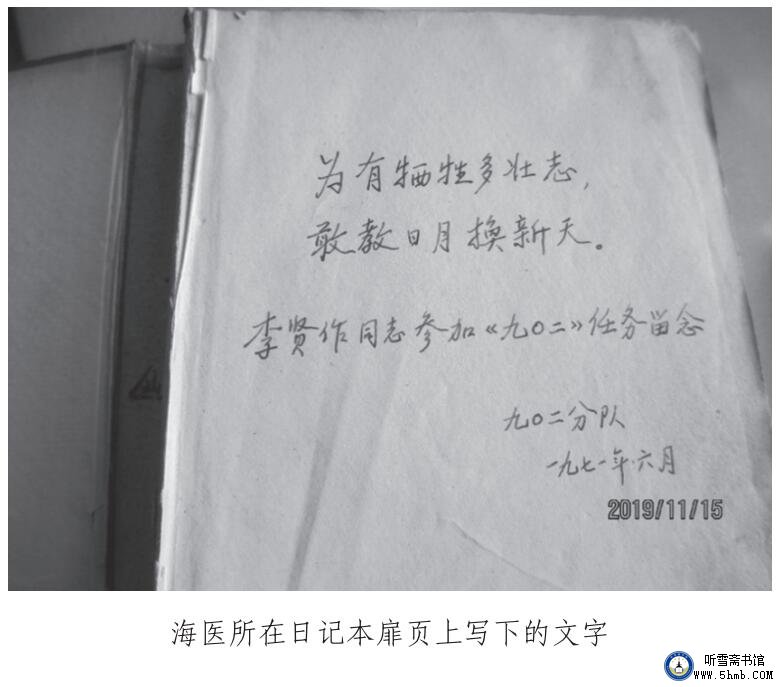 为有牺牲多壮志，
敢教日月换新天。
李贤作同志参加《九〇二》任务留念
九〇二分队
一九七一年·六月
2019/11/15
海医所在日记本扉页上写下的文字
听雪斋书馆
www.5hmb.com